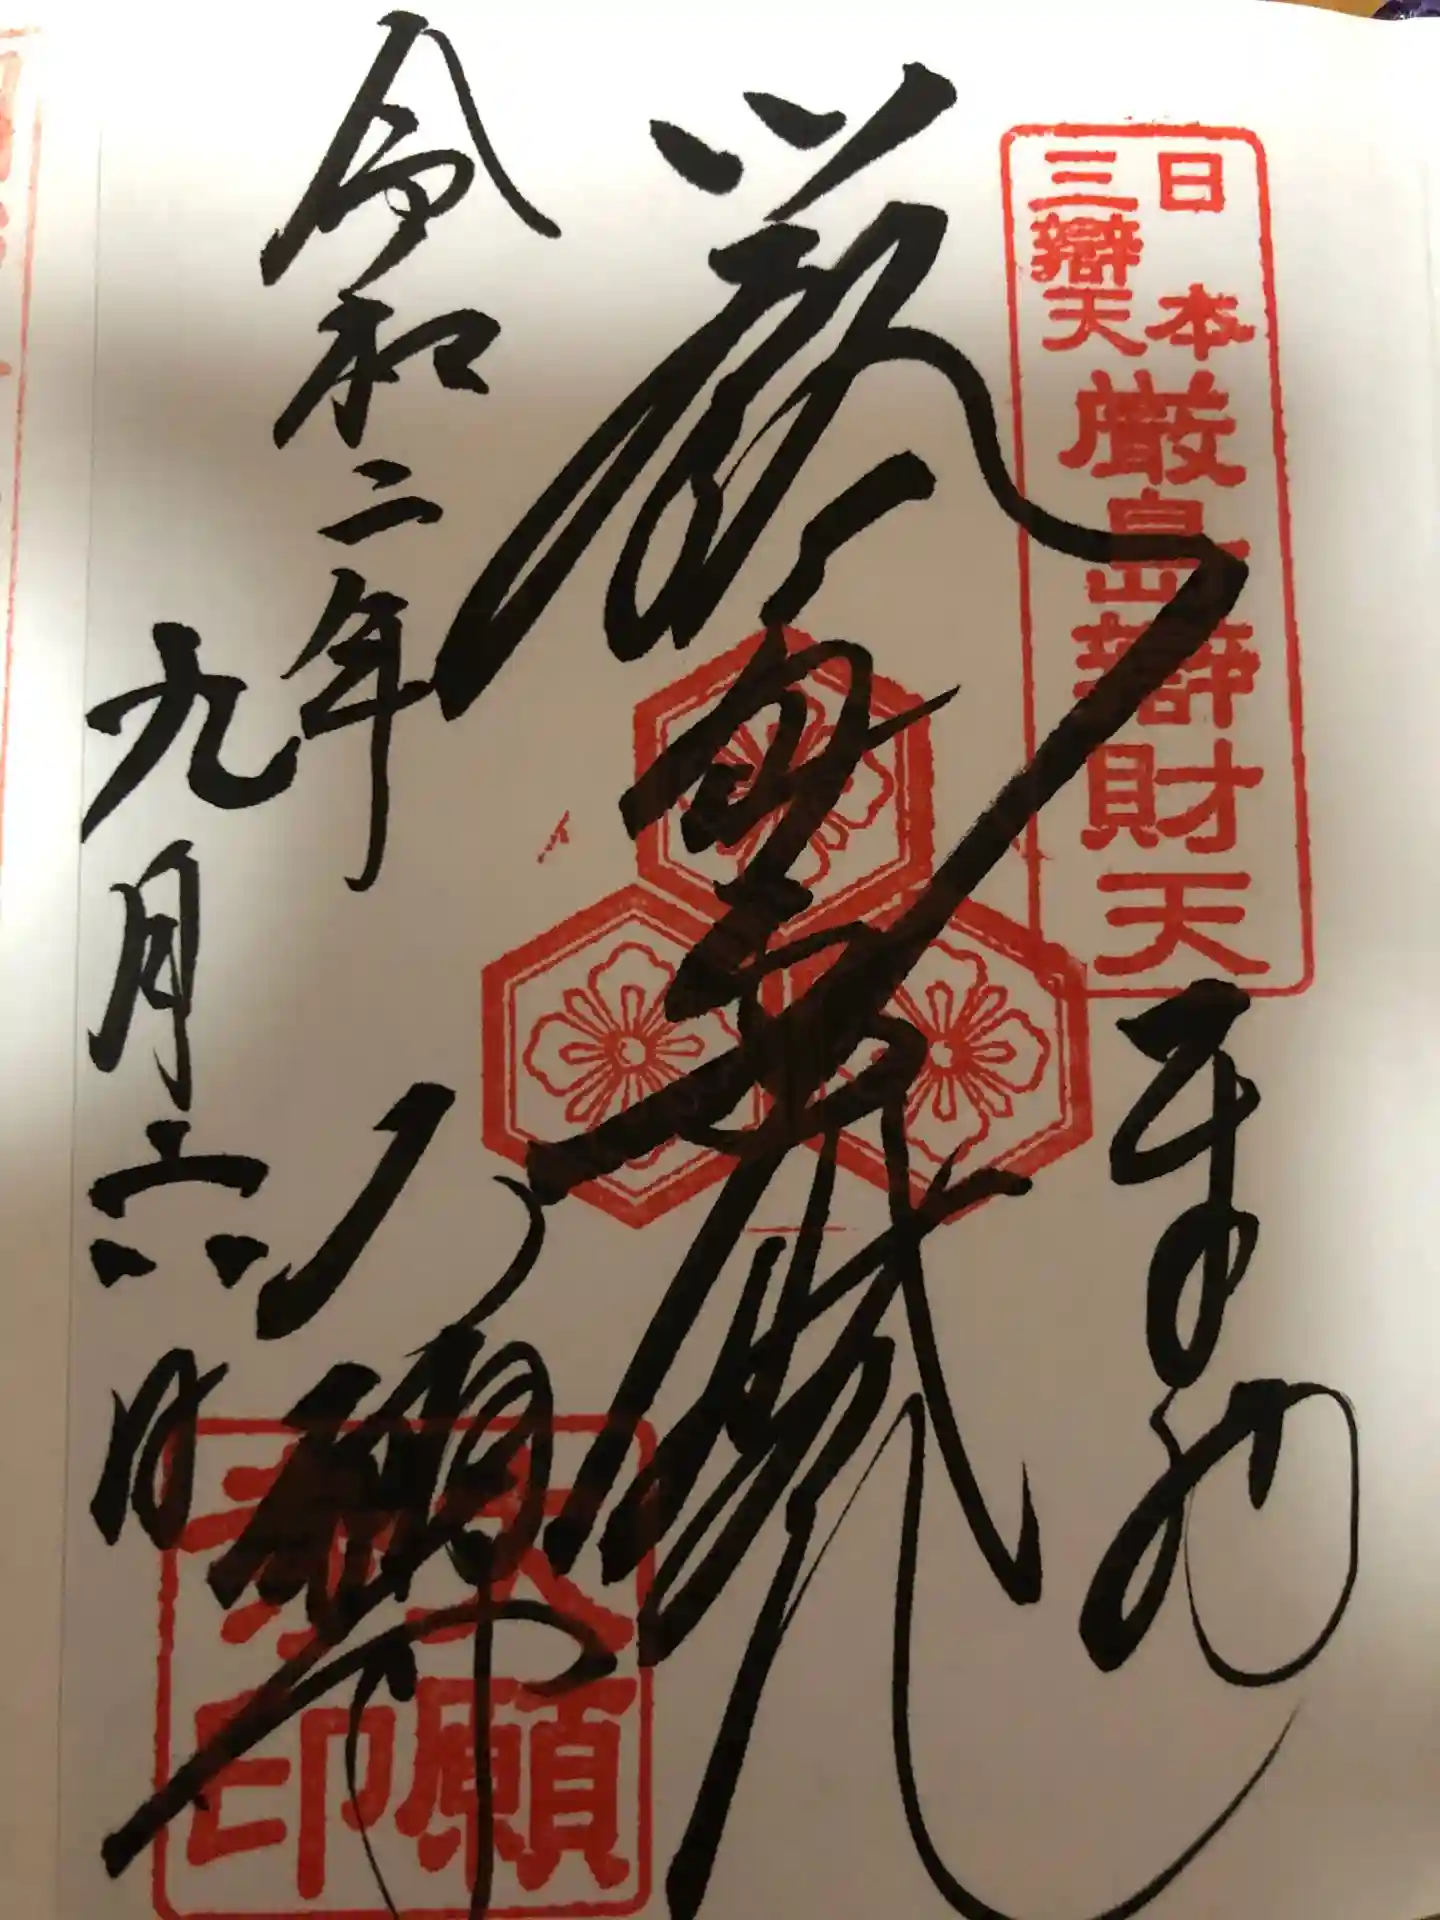 日本
三辯天
厳島辯財天
奉拝
厳島
大願寺
令和二年
九月六日
大願
寺印